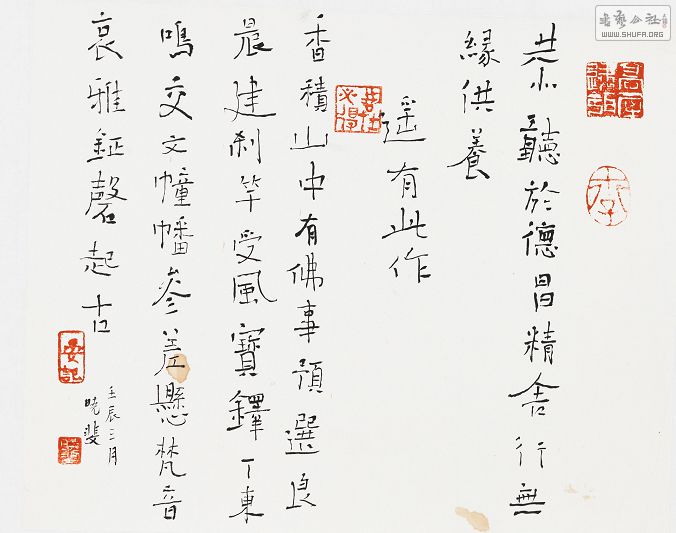 書藝公社
WWW.SHUFA.ORG
共小聽於德昌精舍行無
緣供養
遥有此作
香積山中有佛事預選良
晨建刹竿受風寶鐸丁東
鳴交文幢幡參差懸梵音
哀雅鉦磬起古
壬辰三月
曉斐